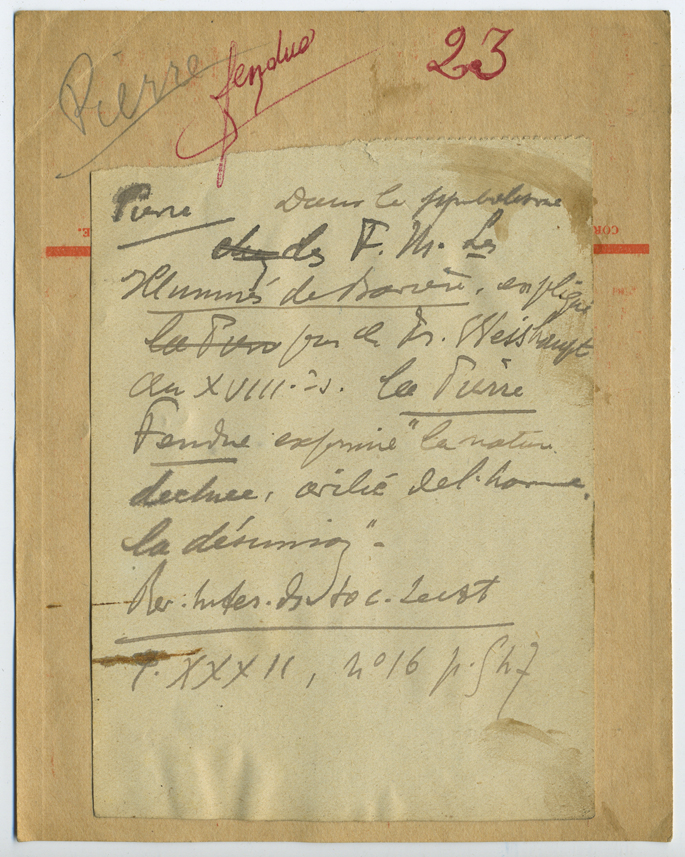 Pierre fendue 23
Pierre Dans le symbolisme
chez des F. M. Les
Illumines de Bavière, expliqué
la Pierre par le Dr. Weishaupt
au XVIII.e s. la Pierre
Fendue exprime "la nature
dechue, avilie de l'homme,
la désunion" -
Rev. Inter. des Soc. Secret
T. XXXII, nº 16 p. 547